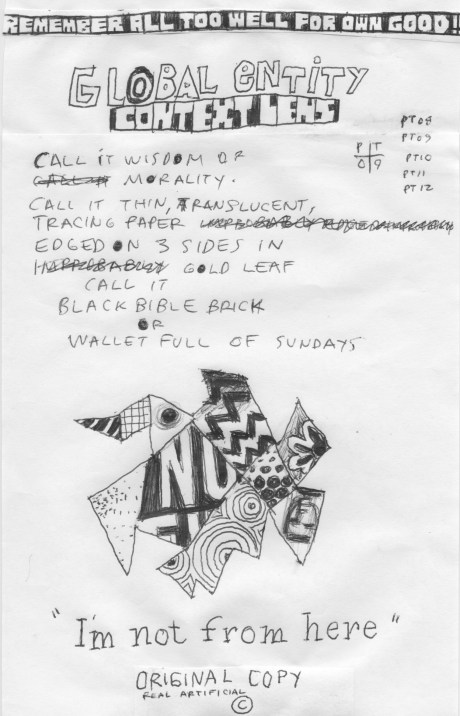 REMEMBER ALL TOO WELL FOR OWN GOOD!!
GLOBAL ENTITY
CONTEXT LENS
PT08
PT09
PT10
PT11
PT12
P T
0 9
CALL IT WISDOM OF
MORALITY.
CALL IT THIN, TRANSLUCENT,
TRACING PAPER
EDGED ON 3 SIDES IN
GOLD LEAF
CALL IT
BLACK BIBLE BRICK
OR
WALLET FULL OF SUNDAYS
"I'm not from here"
ORIGINAL COPY
REAL ARTIFICIAL
©